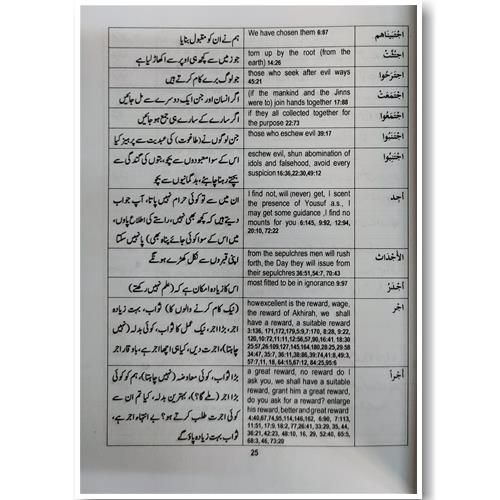 ہم نے ان کو مقبول بنایا We have chosen them 6:87 اجْتَبَيْنَاهم
جو زمیں سے کچھ ہی اوپر سے اکھاڑ لیا ہے torn up by the root (from the اجْتُثَّتْ
earth) 14:26
جو لوگ برے کام کرتے ہیں those who seek after evil ways اجْتَرَحُوا
45:21
اگر انسان اور جن ایک دوسرے سے مل جائیں (if the mankind and the Jinns اجْتَمَعَتْ
were to) join hands together 17:88
اگر سارے کے سارے ہی جمع ہو جائیں if they all collected together for اجْتَمَعُوا
the purpose 22:73
جن لوگوں نے (طاغوت) کی عبدیت سے پرہیز کیا those who eschew evil 39:17 اجْتَنَبُوا
اس کے سوا معبودوں سے بچو، بتوں کی گندگی سے eschew evil, shun abomination of اجْتَنِبُوا
بچتے رہنا چاہئے، بدگمانیوں سے بچو idols and falsehood, avoid every
suspicion 16:36,22:30,49:12
میں ان سے تو کوئی حرام نہیں پاتا، آپ جواب I find not, will (never) get, I scent أجد
دیتے ہیں کہ کچھ بھی نہیں، راستے کی اطلاع پاؤں، the presence of Yousuf a.s., I
میں اس کے سوا کوئی جائے پناہ بھی) پا نہیں سکتا may get some guidance ,I find no
mounts for you 6:145, 9:92, 12:94,
20:10, 72:22
اپنی قبروں سے نکل کھڑے ہونگے from the sepulchres men will rush الأَجْدَاث
forth, the Day they will issue from
their sepulchres 36:51,54:7, 70:43
اس کا زیادہ امکان ہے کہ (علم نہیں رکھتے) most fitted to be in ignorance 9:97 أَجْدَرُ
(نیک کام کرنے والوں کا) ثواب، بہت زیادہ howexcellent is the reward, wage, اجر
اجر، بڑا اجر، نیک عمل کا ثواب، کوئی بدلہ (نہیں the reward of Akhirah, we shall
چاہتا)، اجرت دیں، کیا ہی اچھا اجر ہے، باوقار اجر have a reward, a suitable reward
3:136, 171,172,179,5:9,7:170, 8:28, 9:22,
120,10:72,11:11,12:56,57,90,16:41,18:30
25:57,26:109,127,145,164,180,28:25,29:58
34:47, 35:7, 36:11,38:86,39:74,41:8,49:3,
57:7,11, 18, 64:15,67:12, 84:25,95:6
بڑا ثواب، کوئی معاوضہ (نہیں چاہتا)، ہم کو کوئی a great reward, no reward do I أجْراً
اجر (ملے گا؟)، بہترین بدلہ، کیا تم ان سے ask you, we shall have a suitable
کوئی اجرت طلب کرتے ہو؟ بے انتہاء اجر ہے، reward, grant him a great reward,
ثواب بہت زیادہ پاؤ گے do you ask for a reward? enlarge
his reward, better and great reward
4:40,67,74,95,114,146,162, 6:90, 7:113,
11:51, 17:9, 18:2, 77,26:41, 33:29, 35, 44,
36:21, 42:23, 48:10, 16, 29, 52:40, 65:5,
68:3, 46, 73:20
25